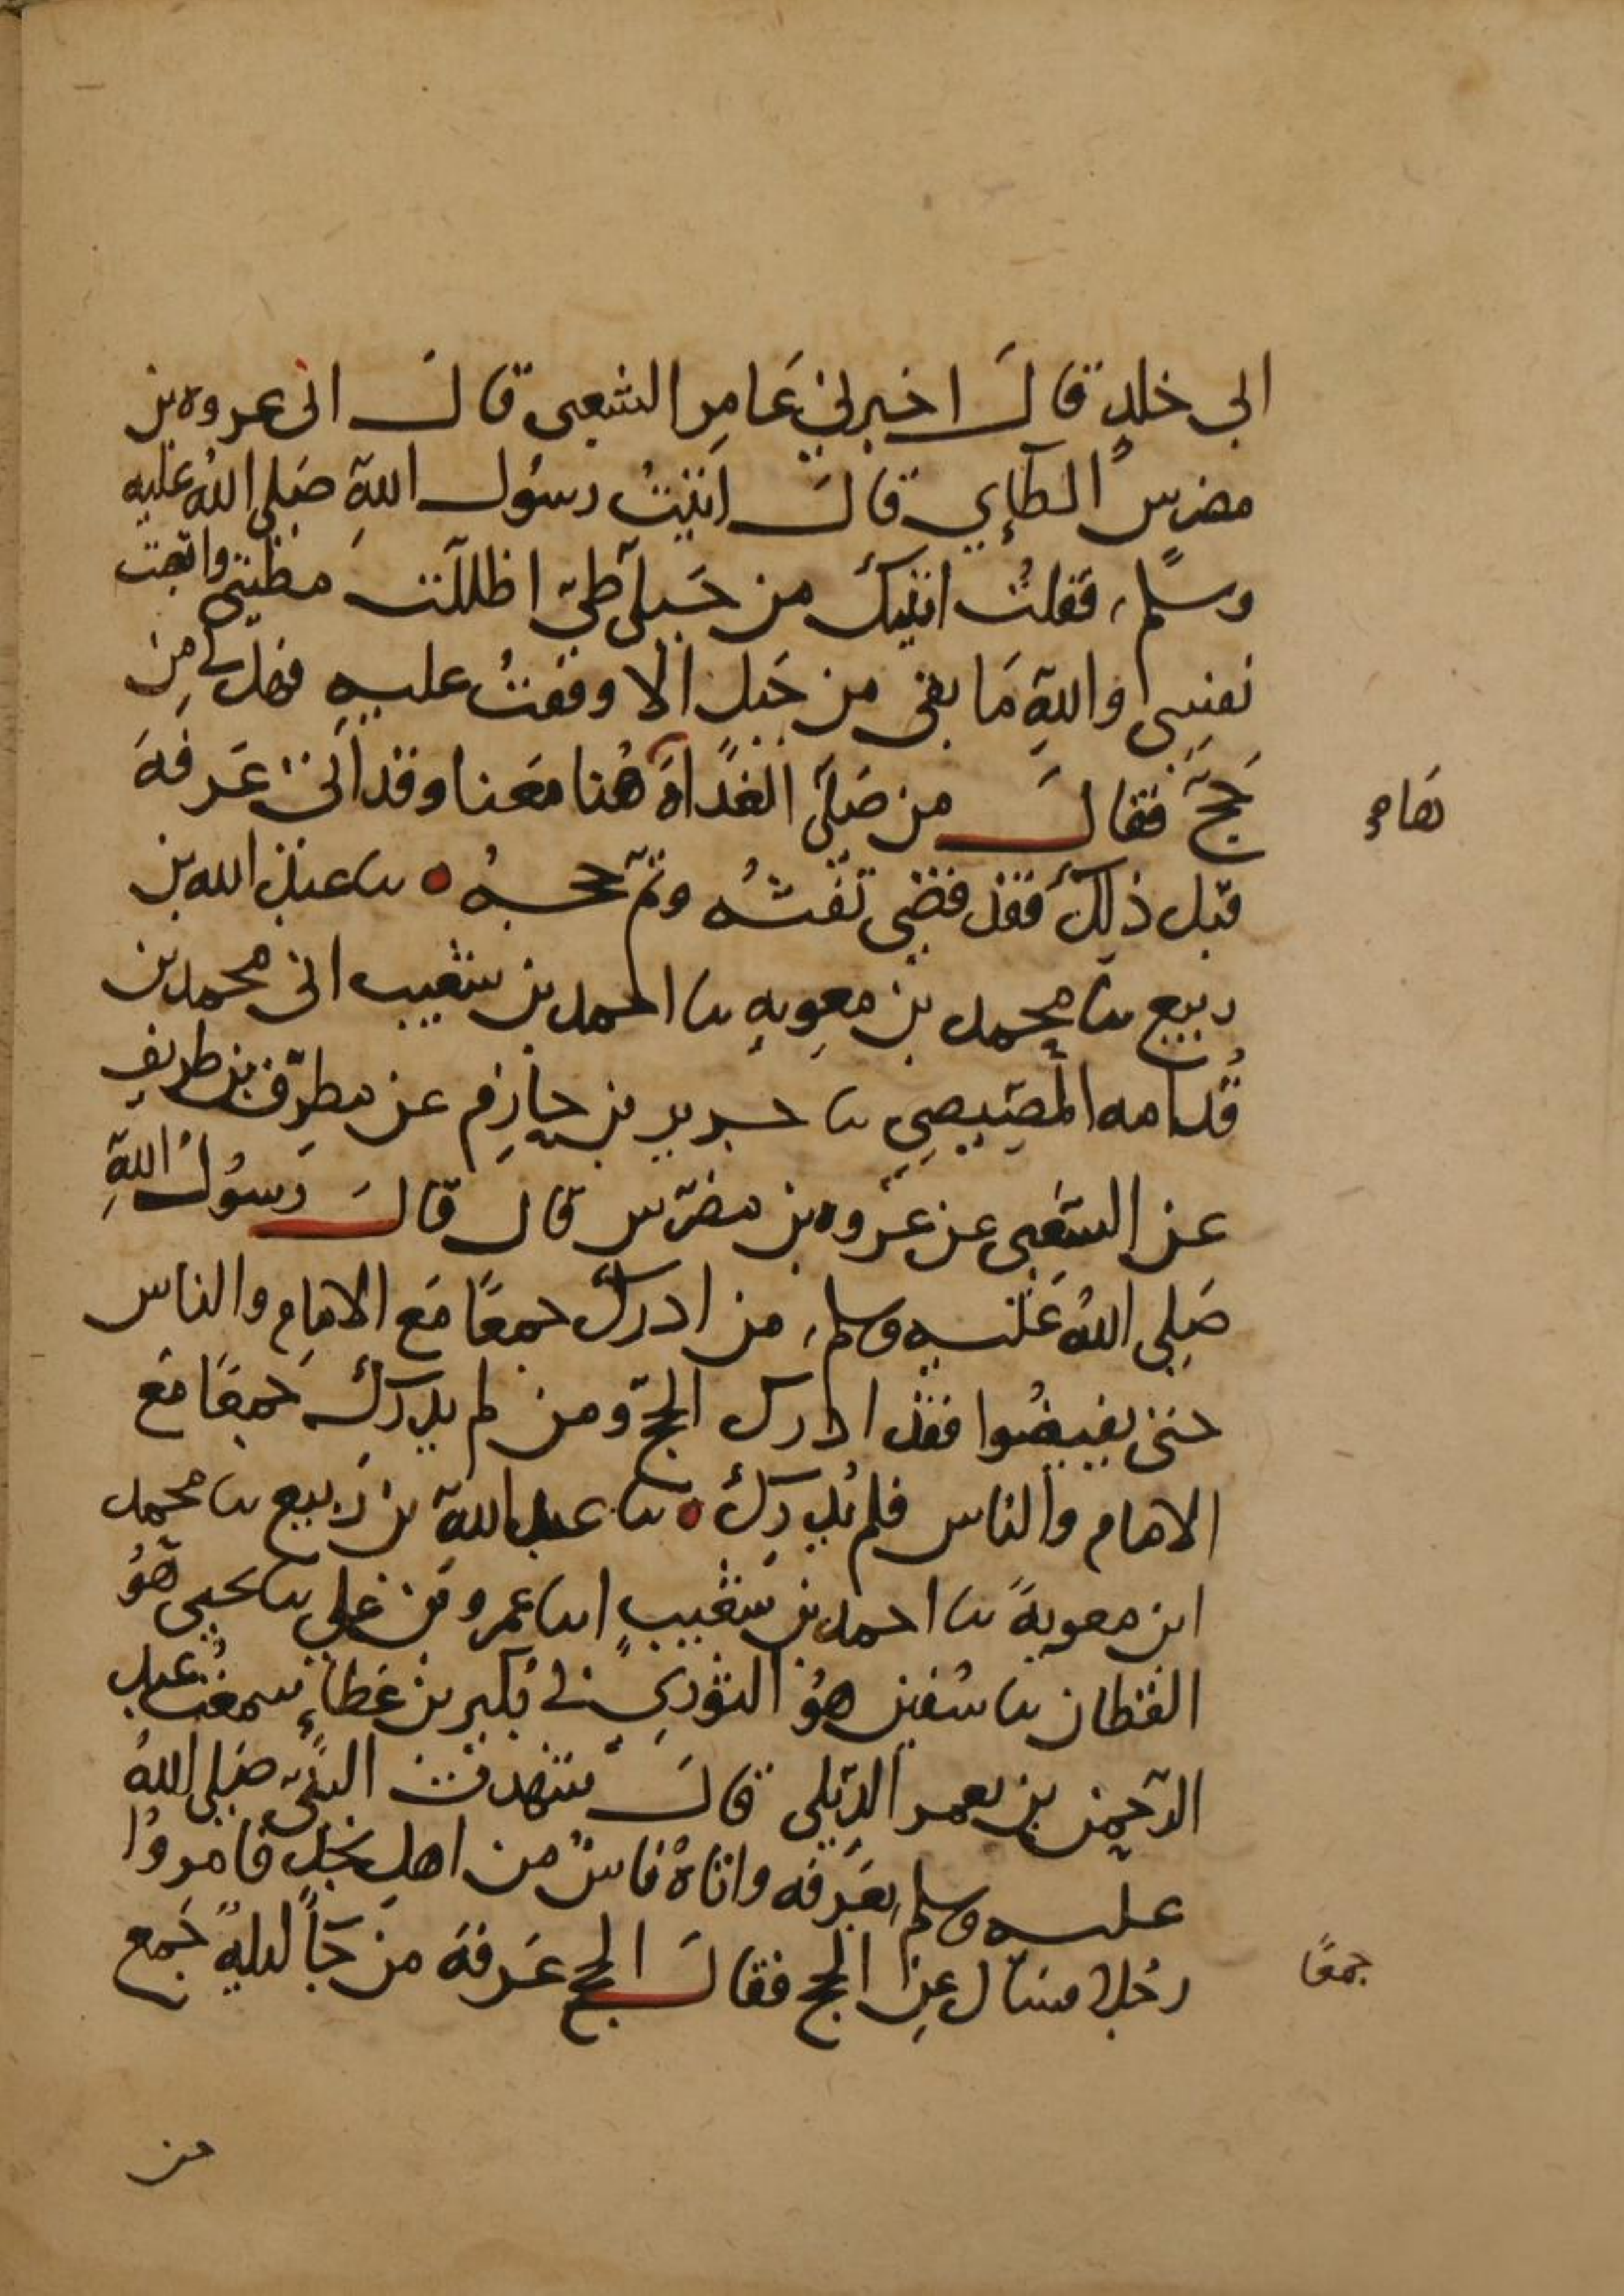 ابى خلدٍ قالَ اخبرنى عَامِر الشعبى قالَ انى عروه بن
مضرس الطآإي قالَ اتيتُ رسُول اللهِ صَلى اللهُ عليه
وسلم، فقلتُ اتيتكَ من جَبلَى طيّ اظللت مطيتى واتعبت
نفسِى واللهِ مَا بقى من جَبل الا وقفتُ عليهِ فهل لى مِن
حَجّ فقالَ من صَلّى الغَداةَ هُنا مَعَنا وقد اتى عَرفةَ
هَاهـ
قبل ذلكَ فقد قضى تفثهُ وتمّ حجهُ ٥ نا عبد الله بن
ربيع نا محمد بن معويه نا احمد بن شعيب انى محمد بن
قُدامه المصِيصِي نا جرير بن حازِم عن مطرِّف بن طريف
عن الشعَبى عن عُروه بن مضرّس قال قالَ رسُولُ اللهِ
صَلى اللهُ عَليه وسلم، من ادركَ جمعًا مَع الامَام والناس
حتى يفيضُوا فقد ادرك الحجّ ومن لم يدركَ جَمعًا مَع
الامام والناس فلم يُدرِكَ ٥ نا عبد اللهِ بن رَبيع نا محمد
ابن معويةَ نا احمد بن شعَيبٍ انا عمرو بن علي نا يحيى هوُ
القطان نا سُفين هوُ الثوري نى بُكير بن عَطاءٍ سمعتُ عبد
الرحمن بن يعمر الدِّيلى قالَ شهدتُ النبىّ صَلى اللهُ
عليه وسلم بعَرفه واتاهُ ناسٌ من اهلِ نجد فامروُا
رجُلا فسال عن الحج فقالَ الحج عَرفةَ من جَآ ليلةَ جَمع
جمعًا
من